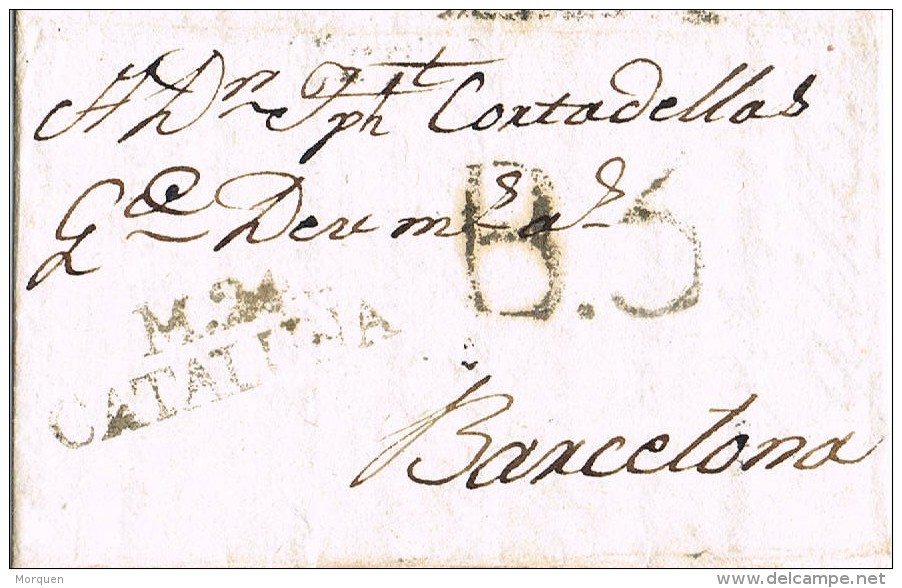 A Dn Jph Cortadellas
Gde Der ms as
B.S
M.24
CATALUÑA
Barcelona
Morquen
www.delcampe.net